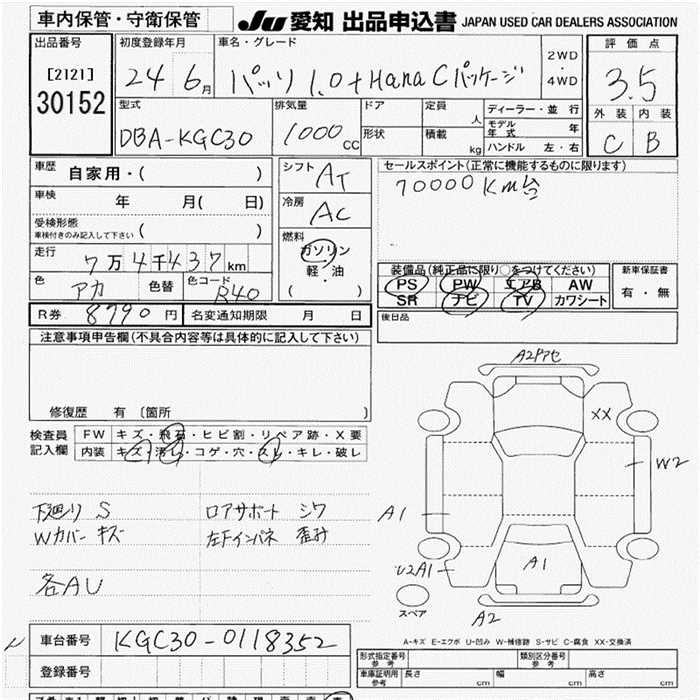 車内保管・守衛保管
JU 愛知 出品申込書 JAPAN USED CAR DEALERS ASSOCIATION
出品番号
[2121]
30152
初度登録年月
24 6月
車名・グレード
パッソ 1.0+Hana Cパッケージ
2WD
・
4WD
評価点
3.5
外装 内装
C B
型式
DBA-KGC30
排気量
1000cc
ドア
形状
定員 人
積載 kg
ディーラー・並行
モデル年式 年
ハンドル 左・右
車歴 自家用・( )
車検 年 月( 日)
受検形態
車検付きのみ記入して下さい ( )
走行 7万4千437km
色 アカ 色替 色コード R40
シフト AT
冷房 AC
燃料
ガソリン
軽・油
( )
セールスポイント(正常に機能するものに限ります)
70000Km台
装備品(純正品に限り○をつけてください)
PS PW エアB AW
SR ナビ TV カワシート
新車保証書
有・無
後日品
R券 8790円 名変通知期限 月 日
注意事項申告欄(不具合内容等は具体的に記入して下さい)
修復歴 有 〔箇所 〕
検査員記入欄
FW キズ・飛石・ヒビ割・リペア跡・X要
内装 キズ・汚レ・コゲ・穴・スレ・キレ・破レ
下廻り S ロアサポート シワ
Wカバー キズ 左Fインパネ 歪み
各AU
A2アセ
XX
W2
A1
U2A1
A1
A2
スペア
A-キズ E-エクボ U-凹み W-補修跡 S-サビ C-腐食 XX-交換済
車台番号 KGC30-0118352
登録番号
形式指定番号
参考
類別区分番号
参考
車庫証明用
参考
長さ cm 幅 cm 高さ cm